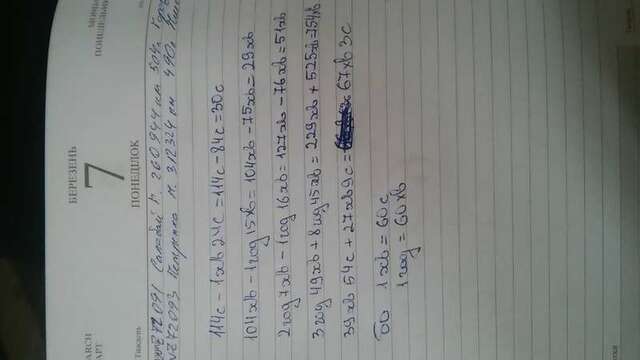 ARCH
АРТ
БЕРЕЗЕНЬ
7
ПОНЕДІЛОК
MONDA
ПОНЕДЕЛЬН
Тиждень
Z72091 260 944 км 504л
Z72093 Петренко М. 312324 км 490л
114с - 1хв 24с = 114с - 84с = 30с
104хв - 1год 15хв = 104хв - 75хв = 29хв
2год 7хв - 1год 16хв = 127хв - 76хв = 51хв
3год 49хв + 8год 45хв = 229хв + 525хв = 754хв
39хв 54с + 27хв 9с = 67хв 3с
бо 1хв = 60с
1год = 60хв